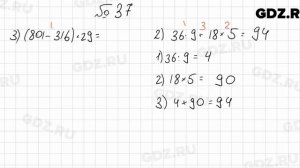 GDZ.RU
№37
3) (801-316)·29=
1
2) 36:9+18·5=94
1 3 2
1) 36:9=4
2) 18·5=90
3) 4+90=94
GDZ.R